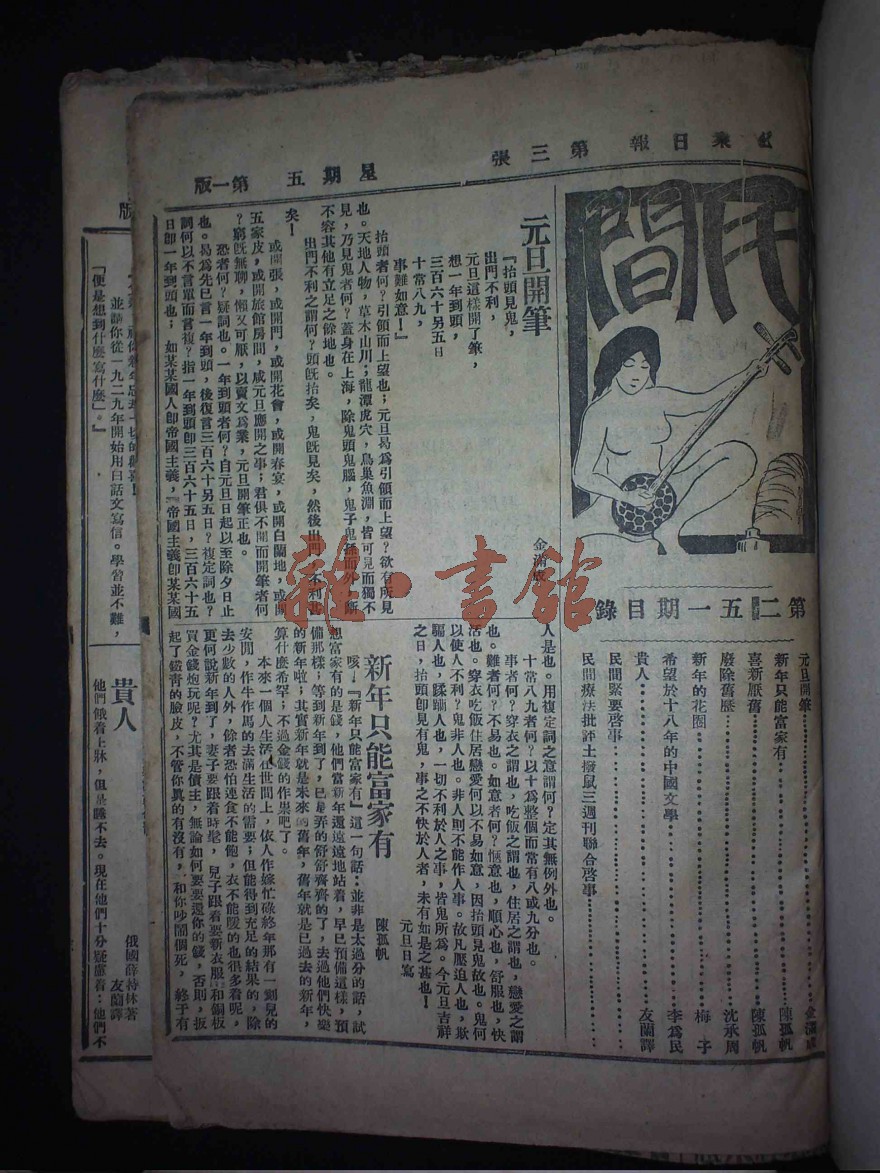 民衆日報 第三張 星期五 第一版
民間
第二五一期目錄
元旦開筆 金滿成
新年只能富家有 陳孤帆
喜新厭舊 陳孤帆
廢除舊歷 沈承周
新年的花圈 梅子
希望於十八年的中國文學 李爲民
貴人 友蘭譯
民間緊要啓事
民間療法批評土撥鼠三週刊聯合啓事
元旦開筆
金滿成
『抬頭見鬼,
出門不利,
元旦這樣開了筆,
想一年到頭,
三百六十另五日
十常八九,
事難如意!』
抬頭者何?引領而上望也;元旦曷爲引領而上望?欲有所見
也。天地人物,草木山川;龍潭虎穴,鳥巢魚淵,皆可見而獨不
見,乃見鬼者何?蓋身在上海,除鬼頭鬼腦,鬼子鬼孫而外,斷
不容其他有立足之餘地也。
出門不利之謂何?頭旣抬矣,鬼旣見矣,然後出門,不利甚
矣!
或開張,或開門,或開花會,或開春宴,或開白蘭地,或開
五家皮,或開旅館房間,咸元旦應開之事;君俱不開而開筆者何
?窮旣無聊,懶又可厭,以賣文爲業,元旦開筆正也。
恐者何?疑詞也。一年到頭者何?自元旦日起以至除夕日止
也。曷爲先已言一年到頭,後復言三百六十另五日?複定詞也?
詞何以不言單而言複?指一年到頭卽三百六十五日,三百六十五
日卽一年到頭也;如某某國人卽帝國主義,『帝國主義卽某某國
人是也。用複定詞之意謂何?定其無例外也。
十常八九者何?以十爲整個而常有八或九分也。
事者何?穿衣之謂也,吃飯之謂也,住居之謂也,戀愛之謂
也。難者何?不易也。如意者何?愜意也,順心也,舒服也,快
活也。穿衣吃飯住居戀愛何以不易如意,因抬頭見鬼故也。鬼何
以使人不利?鬼非人也。非人則不能作人事。故凡壓迫人也,欺
騙人也,蹂躪人也,一切不利於人之事,皆鬼所爲。今元旦吉祥
之日,抬頭卽見有鬼,事之不快於人者,未有如是之甚也!
元旦日寫
新年只能富家有
陳孤帆
咳!『新年只能富家有』這一句話:並非是太過分的話,試
想富家有的是錢,他們當新年還遠遠地站着,早已預備這樣,預
備那樣;等到新年到了,已是弄的舒舒齊齊的了,去過他們快樂
的新年啦;其實新年就是未來的舊年,舊年就是已過去的新年,
算什麽希罕;不過金錢的作祟吧了。
本來一個人生活在世間上,依人作嫁忙碌終年那有一刻兒的
安閒,作牛作馬的去滿生活的需要;但能得到充足的結果的,除
去少數的人外,餘者恐怕連食不能飽,衣不能暖的也很多着呢,
更何說新年到了,妻子要跟着時髦,兒子跟着要新衣服,和銅板
買金錢炮玩呢?尤其是債主,無論如何要要還你的錢,否則,扳
起了鐵靑的臉皮,不管你眞的有沒有,和你吵鬧個死,終于有
版
並請你從一九二九年開始用白話文寫信。學習並不難,
『便是想到什麽寫什麽』。』
貴人
俄國薛特林著
友蘭譯
他們餓着上牀,但是睡不去。現在他們十分疑慮着:他們不
雜·書館